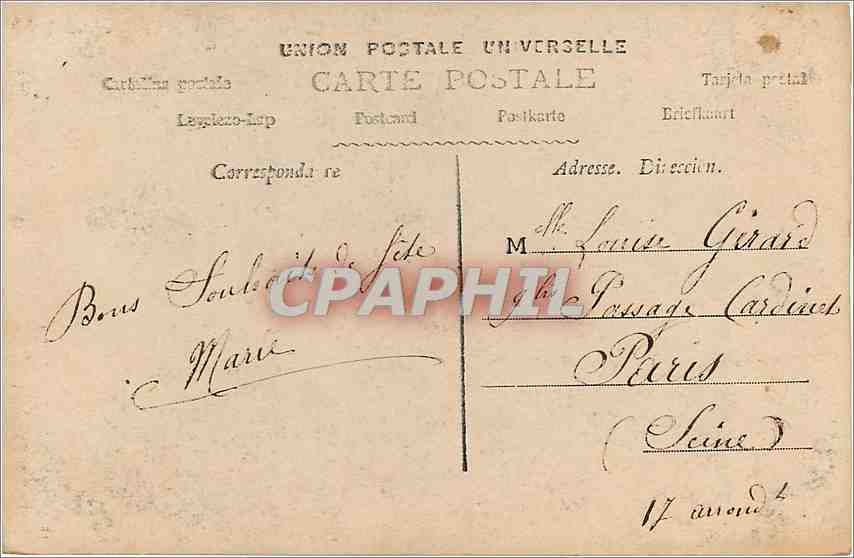 UNION POSTALE UNIVERSELLE
CARTE POSTALE
Cartolina postale Tarjeta postal
Levelezo-Lap Postcard Postkarte Briefkaart
Correspondance
Adresse. Direccion.
Bons Souhaits de fête
Marie
CPAPHIL
Melle. Louise Gérard
Passage Cardinet
Paris
(Seine)
17 arrondt